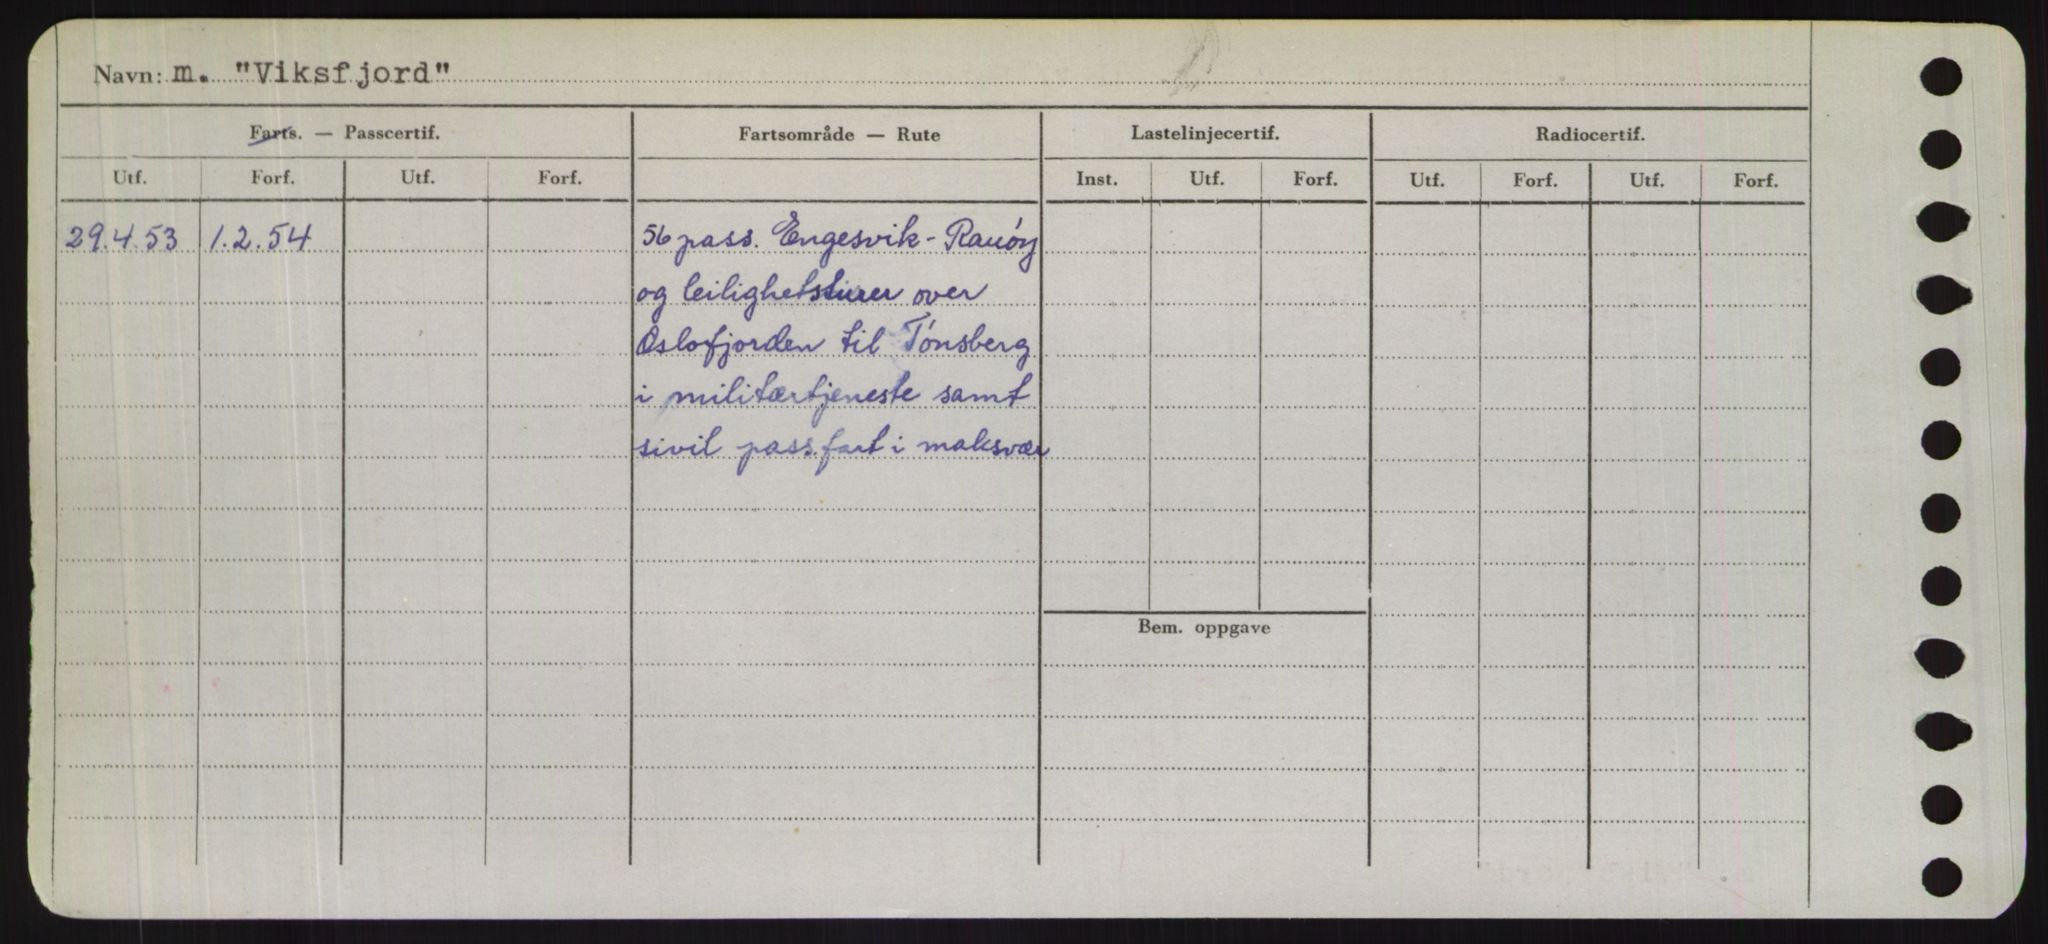 Navn: m. "Viksfjord"
Farts. — Passcertif. Fartsområde — Rute Lastelinjecertif. Radiocertif.
Utf. Forf. Utf. Forf. Inst. Utf. Forf. Utf. Forf. Utf. Forf.
29.4.53 1.2.54 56 pass. Engesvik - Rauøy
og leilighetsturer over
Oslofjorden til Tønsberg
i militærtjeneste samt
sivil pass.fart i maksvær
Bem. oppgave